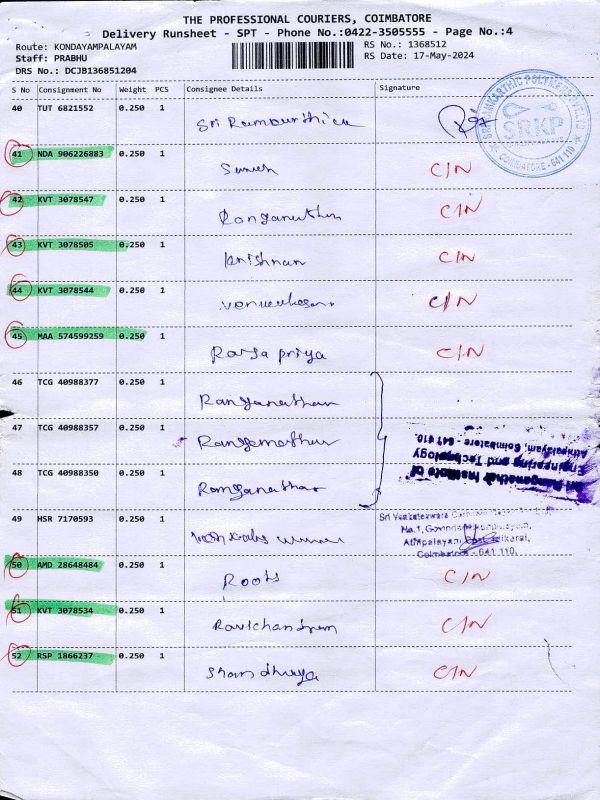 THE PROFESSIONAL COURIERS, COIMBATORE
Delivery Runsheet - SPT - Phone No.:0422-3505555 - Page No.:4
Route: KONDAYAMPALAYAM RS No.: 1368512
Staff: PRABHU RS Date: 17-May-2024
DRS No.: DCJB136851204
S No Consignment No Weight PCS Consignee Details Signature
40 TUT 6821552 0.250 1 Sri
41 NDA 906226883 0.250 1 Suresh C/N
42 KVT 3078547 0.250 1 Ranganathan C/N
43 KVT 3078505 0.250 1 Krishnan C/N
44 KVT 3078544 0.250 1 C/N
45 MAA 574599259 0.250 1 Priya C/N
46 TCG 40988377 0.250 1 Ranganathan
47 TCG 40988357 0.250 1 Ranganathan
48 TCG 40988350 0.250 1 Ranganathar
49 HSR 7170593 0.250 1
50 AMD 28648484 0.250 1 Roots C/N
51 KVT 3078534 0.250 1 Ravichandran C/N
52 RSP 1866237 0.250 1 C/N
SRKP
COIMBATORE - 641 110
Sri Ranganathar Institute of
Engineering and Technology
Athipalayam, Coimbatore - 641 110.
Sri Venkateswara
No.1,
Athipalayam
Coimbatore - 641 110.